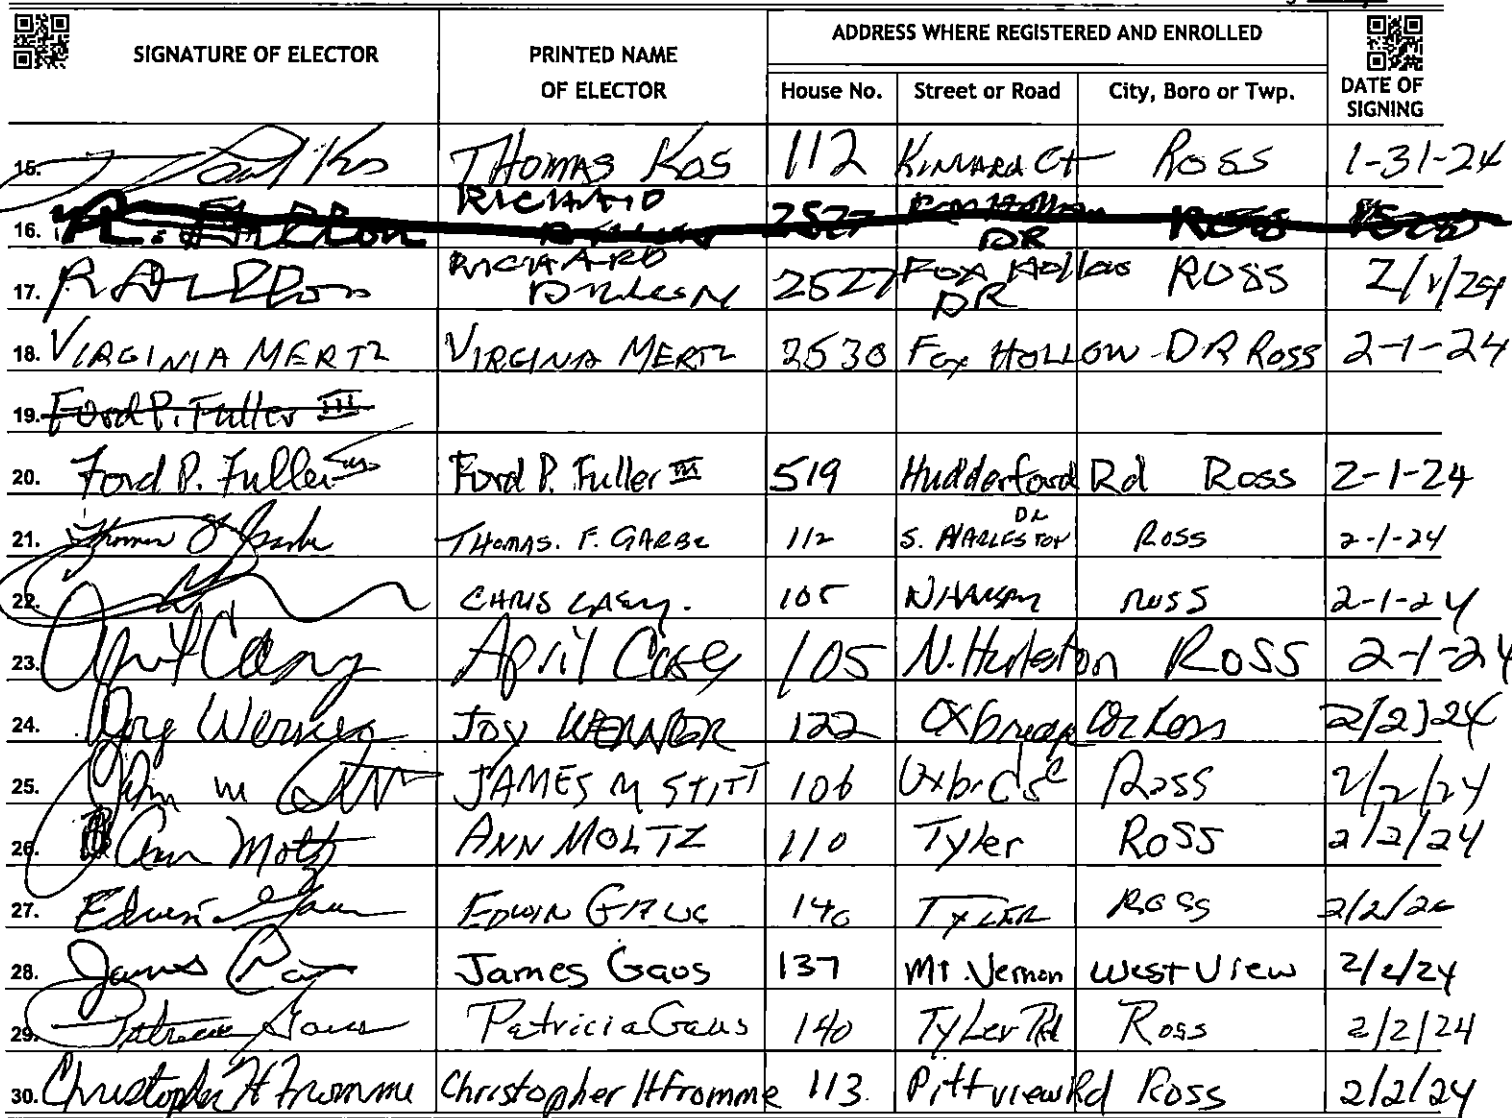 SIGNATURE OF ELECTOR
PRINTED NAME OF ELECTOR
ADDRESS WHERE REGISTERED AND ENROLLED
House No. Street or Road City, Boro or Twp.
DATE OF SIGNING
15. THOMAS KOS 112 KINVARA Ct ROSS 1-31-24
16. RICHARD 2527 DR ROSS
17. RICHARD 2527 FOX Hollow DR ROSS
18. VIRGINIA MERTZ VIRGINIA MERTZ 2530 Fox HOLLOW DR ROSS 2-1-24
19. Ford P. Fuller III
20. Ford P. Fuller III Ford P. Fuller III 519 Rd Ross 2-1-24
21. THOMAS. F. 112 S. DR ROSS 2-1-24
22. CHRIS CASEY. 105 ROSS 2-1-24
23. April Casey 105 N. ROSS 2-1-24
24. Joy Werner JOY WERNER 122 2/2/24
25. JAMES M STITT 106 Ross 2/2/24
26. Ann Moltz ANN MOLTZ 110 Tyler ROSS 2/2/24
27. Edwin EDWIN TYLER ROSS
28. James James Gaus 137 Mt. Vernon West View 2/2/24
29. Patricia Gaus Patricia Gaus 140 Tyler Rd Ross 2/2/24
30. Christopher H Fromme Christopher H Fromme 113 Pittview Rd Ross 2/2/24